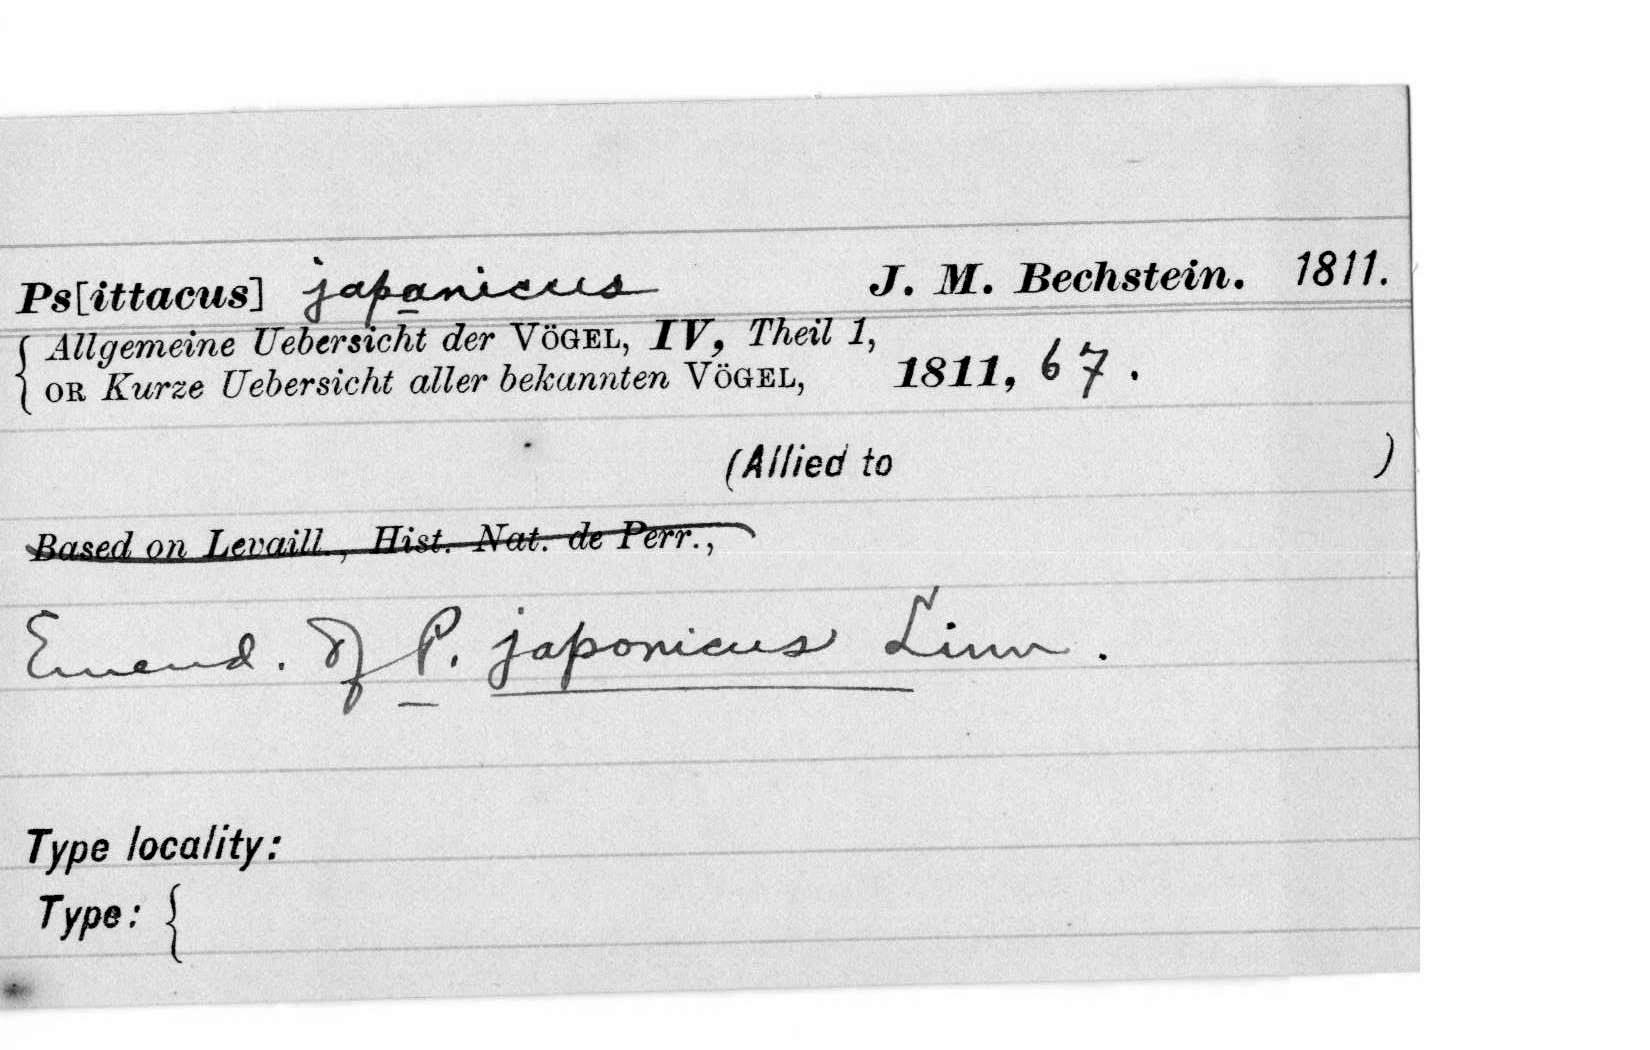 Ps[ittacus] japanicus J. M. Bechstein. 1811.
{ Allgemeine Uebersicht der VÖGEL, IV, Theil 1,
OR Kurze Uebersicht aller bekannten VÖGEL, 1811, 67.
(Allied to )
Based on Levaill., Hist. Nat. de Perr.,
Emend. of P. japonicus Linn.
Type locality:
Type: {